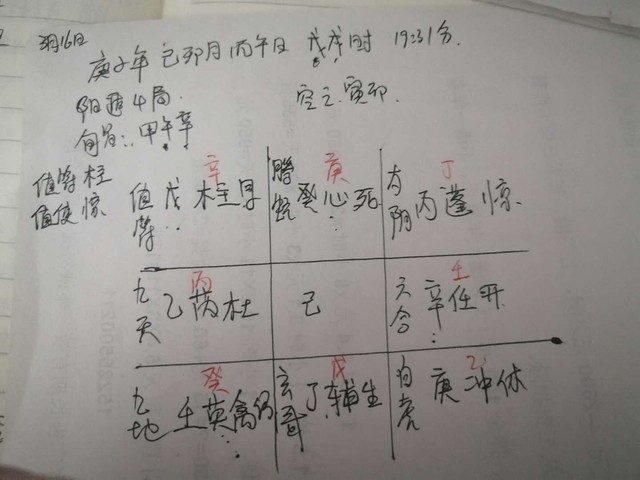 3月16日
庚子年 己卯月 丙午日 戊戌时 19:31分.
阳遁4局.
空亡:寅卯.
旬首:甲午辛
值符柱
值使惊
辛
值符 戊柱景
庚
腾蛇 癸心死
丁
太阴 丙蓬惊
丙
九天 乙芮杜
己
壬
六合 辛任开
癸
九地 壬英禽伤
戊
玄武 丁辅生
乙
白虎 庚冲休